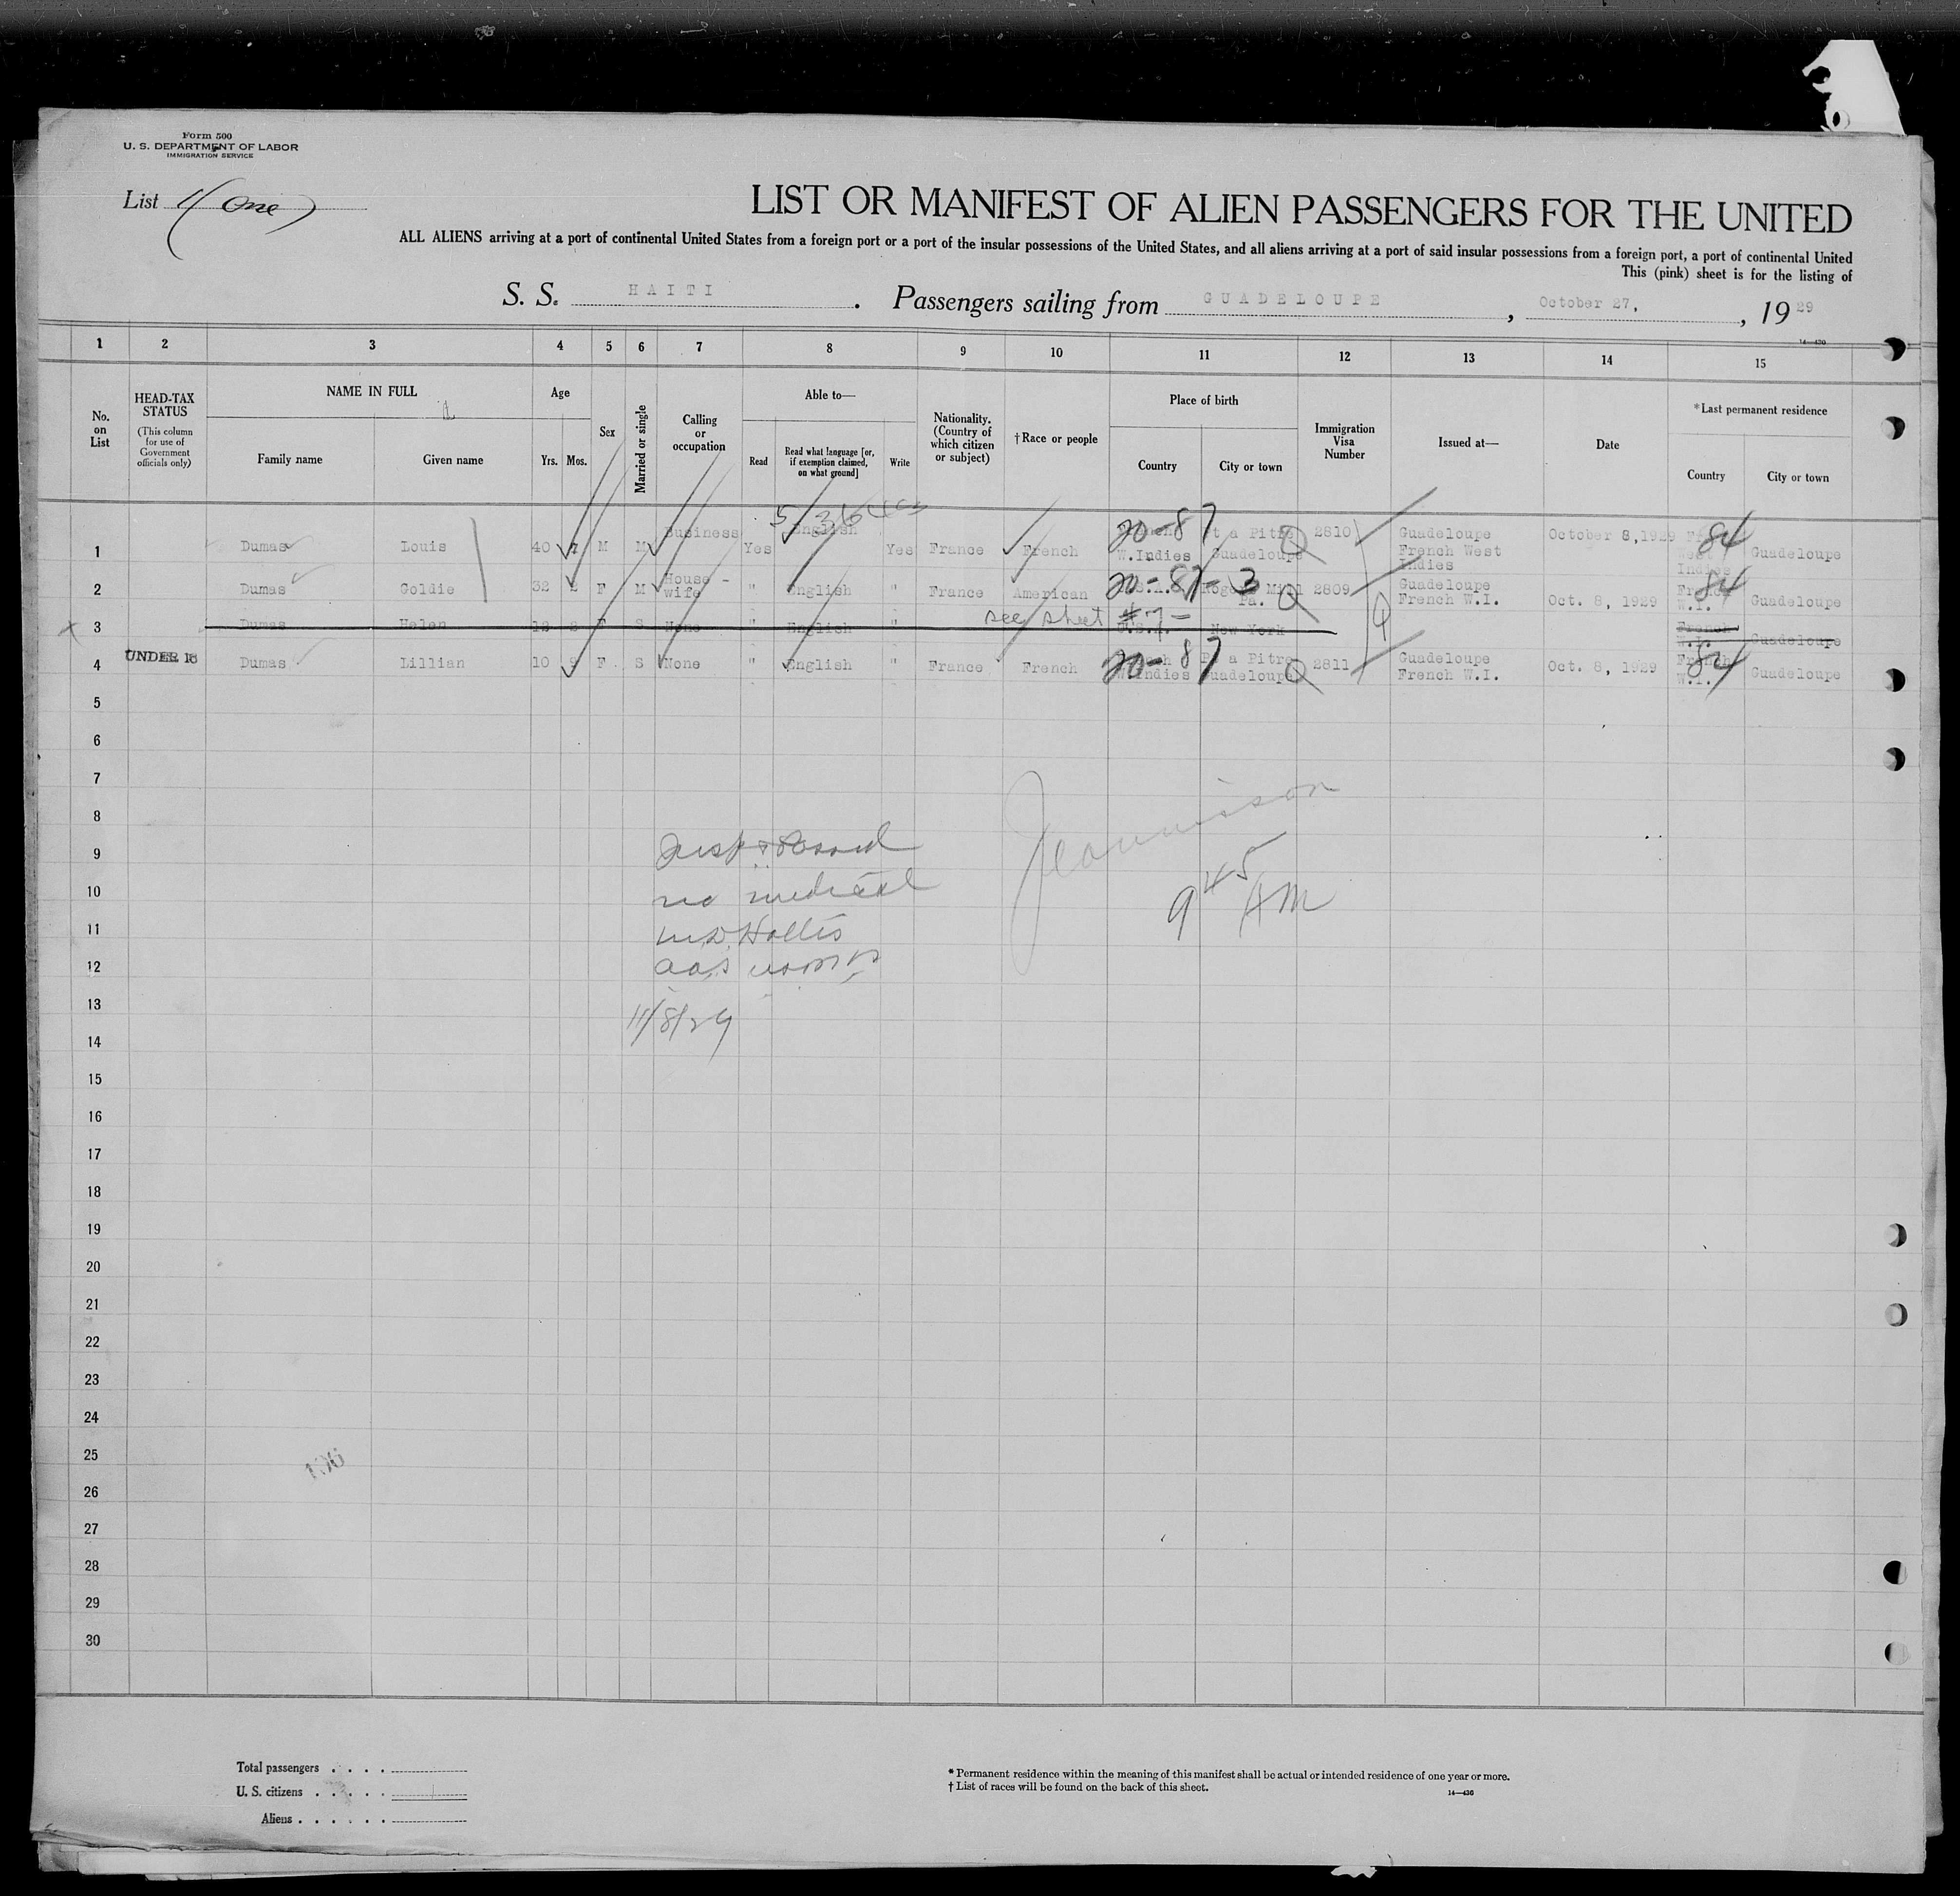 Form 500
U. S. DEPARTMENT OF LABOR
IMMIGRATION SERVICE
List 1 (One)
LIST OR MANIFEST OF ALIEN PASSENGERS FOR THE UNITED
ALL ALIENS arriving at a port of continental United States from a foreign port or a port of the insular possessions of the United States, and all aliens arriving at a port of said insular possessions from a foreign port, a port of continental United
This (pink) sheet is for the listing of
S. S. HAITI . Passengers sailing from GUADELOUPE , October 27, , 1929
1 2 3 4 5 6 7 8 9 10 11 12 13 14 15
No. on List
HEAD-TAX STATUS
(This column for use of Government officials only)
NAME IN FULL
Family name Given name
Age
Yrs. Mos.
Sex
Married or single
Calling or occupation
Able to—
Read
Read what language [or, if exemption claimed, on what ground]
Write
Nationality. (Country of which citizen or subject)
†Race or people
Place of birth
Country City or town
Immigration Visa Number
Issued at—
Date
*Last permanent residence
Country City or town
1 Dumas Louis 40 M M Business Yes English Yes France French 20-87 W.Indies Guadeloupe 2810 Guadeloupe French West Indies October 8,1929 84 Guadeloupe
2 Dumas Goldie 32 F M House-wife " English " France American 20-87-3 Pa. 2809 Guadeloupe French W.I. Oct. 8, 1929 84 W.I. Guadeloupe
3 Dumas Helen F S None " English " see sheet #7- New York French W.I. Guadeloupe
UNDER 16
4 Dumas Lillian 10 9 F S None " English " France French 20-87 a Pitre W.Indies Guadeloupe 2811 Guadeloupe French W.I. Oct. 8, 1929 84 W.I. Guadeloupe
5
6
7
8
9
10
11
12
13
14
15
16
17
18
19
20
21
22
23
24
25
26
27
28
29
30
no medical
Hollis
11/8/29
9 45 AM
Total passengers . . . .
U. S. citizens . . . . .
Aliens . . . . . .
* Permanent residence within the meaning of this manifest shall be actual or intended residence of one year or more.
† List of races will be found on the back of this sheet.